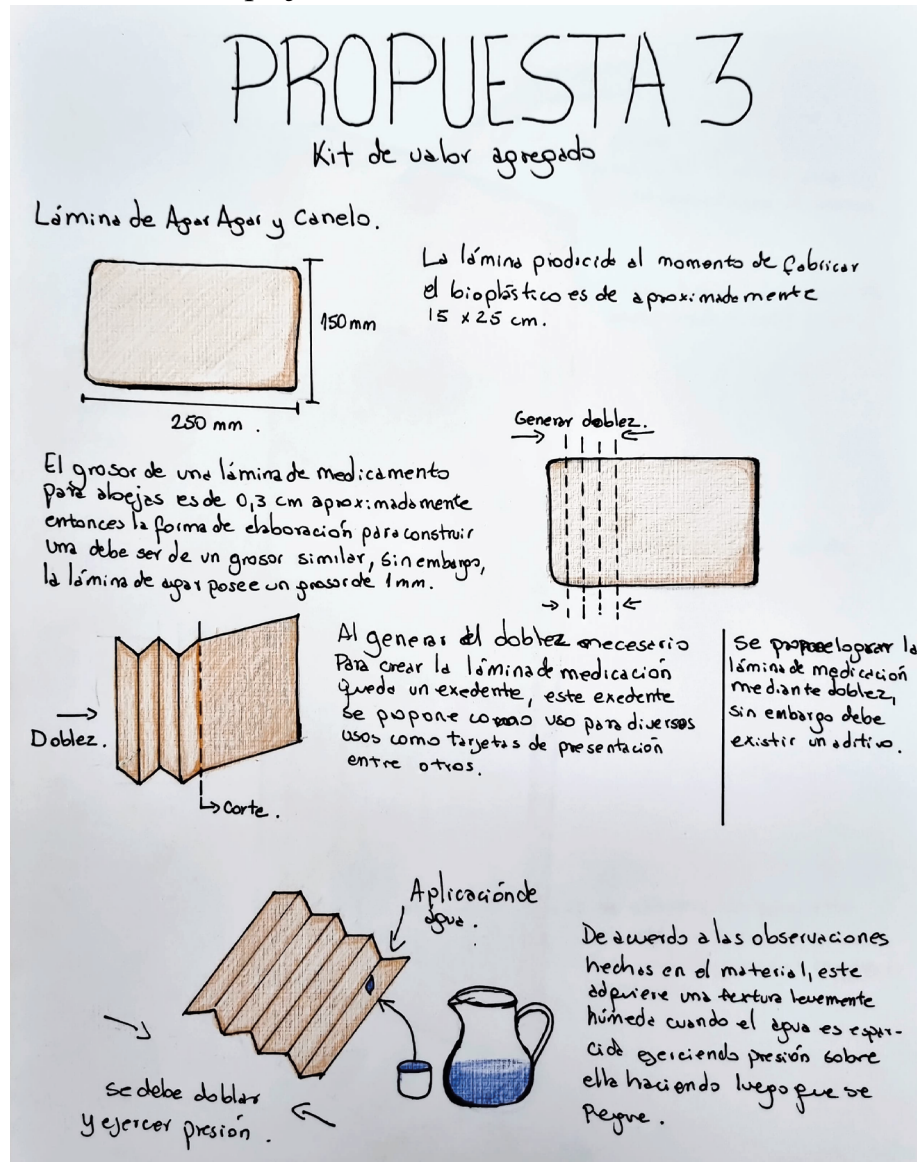 PROPUESTA 3
Kit de valor agregado
Lámina de Agar Agar y Canelo.
La lámina producida al momento de fabricar
el bioplástico es de aproximadamente
15 x 25 cm.
150 mm
250 mm.
Generar doblez.
El grosor de una lámina de medicamento
para abejas es de 0,3 cm aproximadamente
entonces la forma de elaboración para construir
una debe ser de un grosor similar, sin embargo,
la lámina de agar posee un grosor de 1mm.
Doblez.
Corte.
Al generar el doblez necesario
Para crear la lámina de medicación
queda un exedente, este exedente
se propone como uso para diversos
usos como tarjetas de presentación
entre otros.
Se propone lograr la
lámina de medicación
mediante doblez,
sin embargo debe
existir un aditivo.
Aplicación de
agua.
se debe doblar
y ejercer presión.
De acuerdo a las observaciones
hechas en el material, este
adquiere una textura levemente
húmeda cuando el agua es espar-
cida ejerciendo presión sobre
ella haciendo luego que se
pegue.